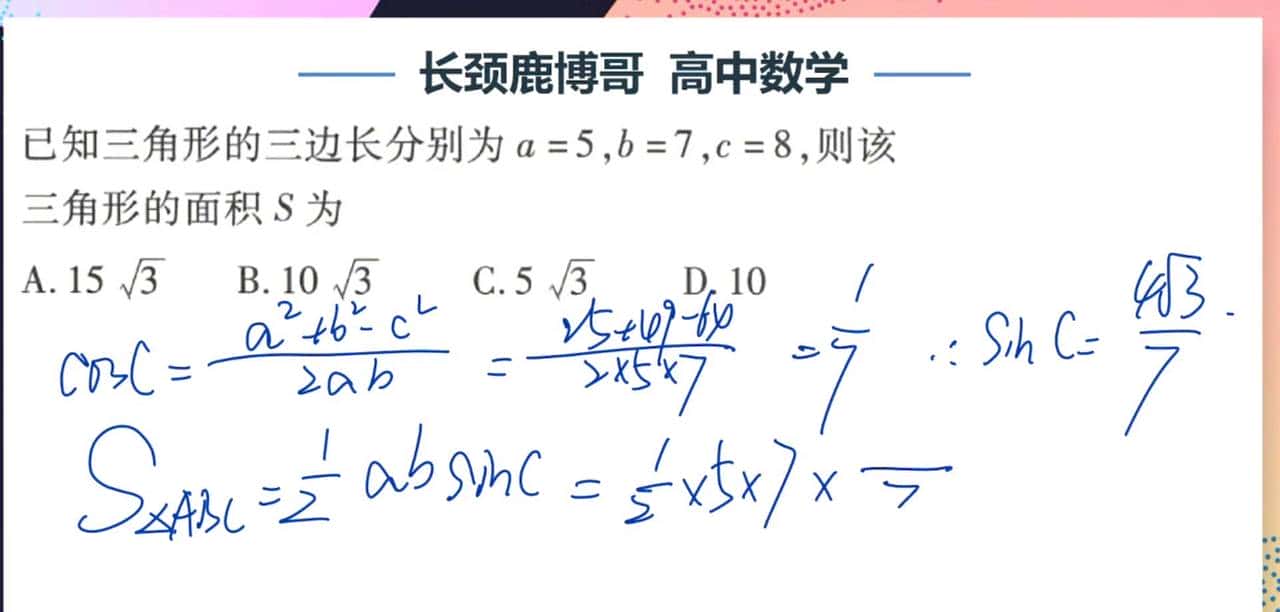 长颈鹿博哥 高中数学
已知三角形的三边长分别为 a=5,b=7,c=8,则该
三角形的面积 S 为
A. 15√3 B. 10√3 C. 5√3 D. 10
cosC = (a²+b²-c²)/(2ab) = (25+49-64)/(2×5×7) = 1/7 ∴ sinC = 4√3/7.
S△ABC = 1/2 ab sinC = 1/2 ×5×7× /7